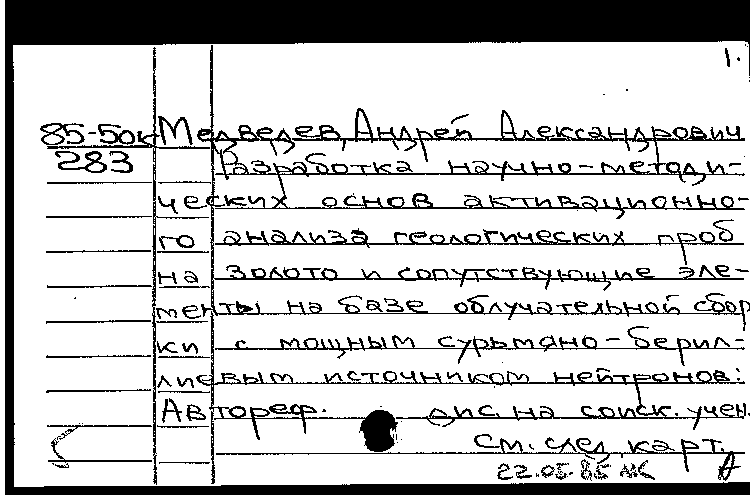 1.
85-50к Медведев, Андрей Александрович
283 Разработка научно-методи-
ческих основ активационно-
го анализа геологических проб
на золото и сопутствующие эле-
менты на базе облучательной сбор
ки с мощным сурьмяно-берил-
лиевым источником нейтронов:
Автореф. дис. на соиск. учен.
См. след. карт.
22.05.85